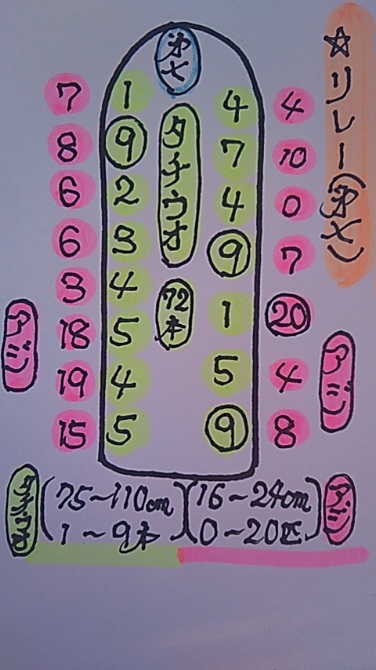 ☆リレー(第七)
第七
タチウオ
72本
7 1 4 4
8 9 7 10
6 2 4 0
6 3 9 7
3 4 1 20
18 5 5 4
19 4 9 8
15 5
アジ
アジ
タチウオ (75~110cm 1~9本)
(16~24cm 0~20匹) アジ